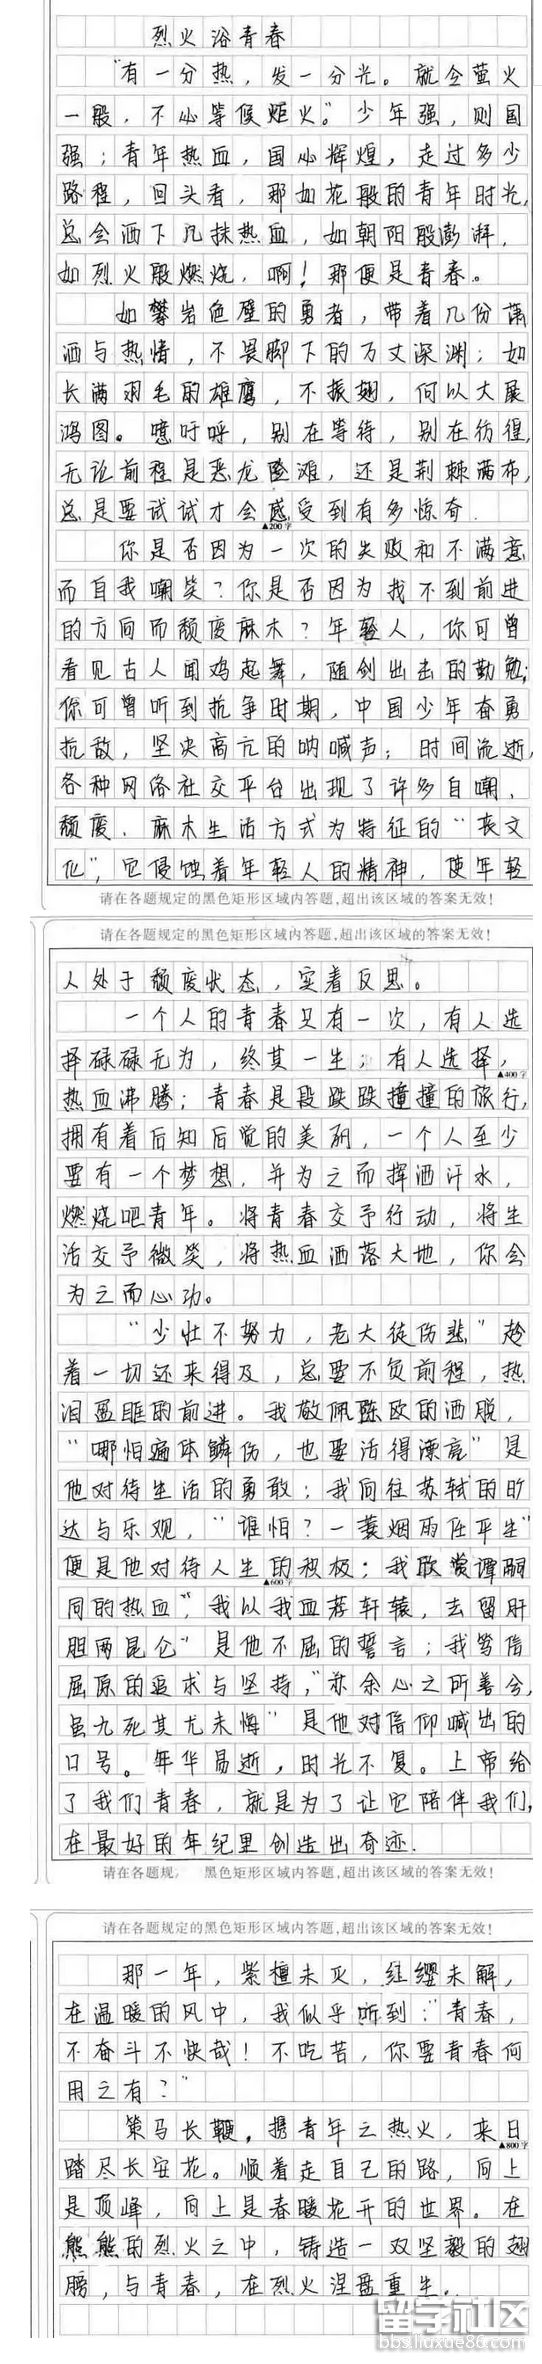 烈火浴青春
"有一分热，发一分光。就令萤火
一般，不必等候炬火。"少年强，则国
强；青年热血，国必辉煌，走过多少
路程，回头看，那如花般的青年时光，
总会洒下几抹热血，如朝阳般澎湃，
如烈火般燃烧，啊！那便是青春。
如攀岩危壁的勇者，带着几份潇
洒与热情，不畏脚下的万丈深渊；如
长满羽毛的雄鹰，不振翅，何以大展
鸿图。噫吁呼，别在等待，别在彷徨，
无论前程是恶龙险滩，还是荆棘满布，
总是要试试才会感受到有多惊奇.
▲200字
你是否因为一次的失败和不满意
而自我嘲笑？你是否因为找不到前进
的方向而颓废麻木？年轻人，你可曾
看见古人闻鸡起舞，随剑出击的勤勉；
你可曾听到抗争时期，中国少年奋勇
抗敌，坚决高亢的呐喊声；时间流逝，
各种网络社交平台出现了许多自嘲、
颓废、麻木生活方式为特征的"丧文
化"，它侵蚀着年轻人的精神，使年轻
请在各题规定的黑色矩形区域内答题,超出该区域的答案无效!
请在各题规定的黑色矩形区域内答题,超出该区域的答案无效!
人处于颓废状态，实着反思。
一个人的青春只有一次，有人选
择碌碌无为，终其一生；有人选择，
▲400字
热血沸腾；青春是段跌跌撞撞的旅行，
拥有着后知后觉的美丽，一个人至少
要有一个梦想，并为之而挥洒汗水，
燃烧吧青年。将青春交予行动，将生
活交予微笑，将热血洒落大地，你会
为之而心动。
"少壮不努力，老大徒伤悲"趁
着一切还来得及，总要不负前程，热
泪盈眶的前进。我敬佩陈欧的洒脱，
"哪怕遍体鳞伤，也要活得漂亮"是
他对待生活的勇敢；我向往苏轼的旷
达与乐观，"谁怕？一蓑烟雨任平生"
便是他对待人生的积极；我欣赏谭嗣
▲600字
同的热血"，我以我血荐轩辕，去留肝
胆两昆仑"是他不屈的誓言；我笃信
屈原的追求与坚持，"亦余心之所善兮，
虽九死其尤未悔"是他对信仰喊出的
口号。年华易逝，时光不复。上帝给
了我们青春，就是为了让它陪伴我们，
在最好的年纪里创造出奇迹.
请在各题规 黑色矩形区域内答题,超出该区域的答案无效!
请在各题规定的黑色矩形区域内答题,超出该区域的答案无效!
那一年，紫檀未灭，红缨未解，
在温暖的风中，我似乎听到："青春，
不奋斗不快哉！不吃苦，你要青春何
用之有？"
策马长鞭，携青年之热火，来日
▲800字
踏尽长安花。顺着走自己的路，向上
是顶峰，向上是春暖花开的世界。在
熊熊的烈火之中，铸造一双坚毅的翅
膀，与青春，在烈火涅盘重生。
留学社区
bbs.liuxue86.com